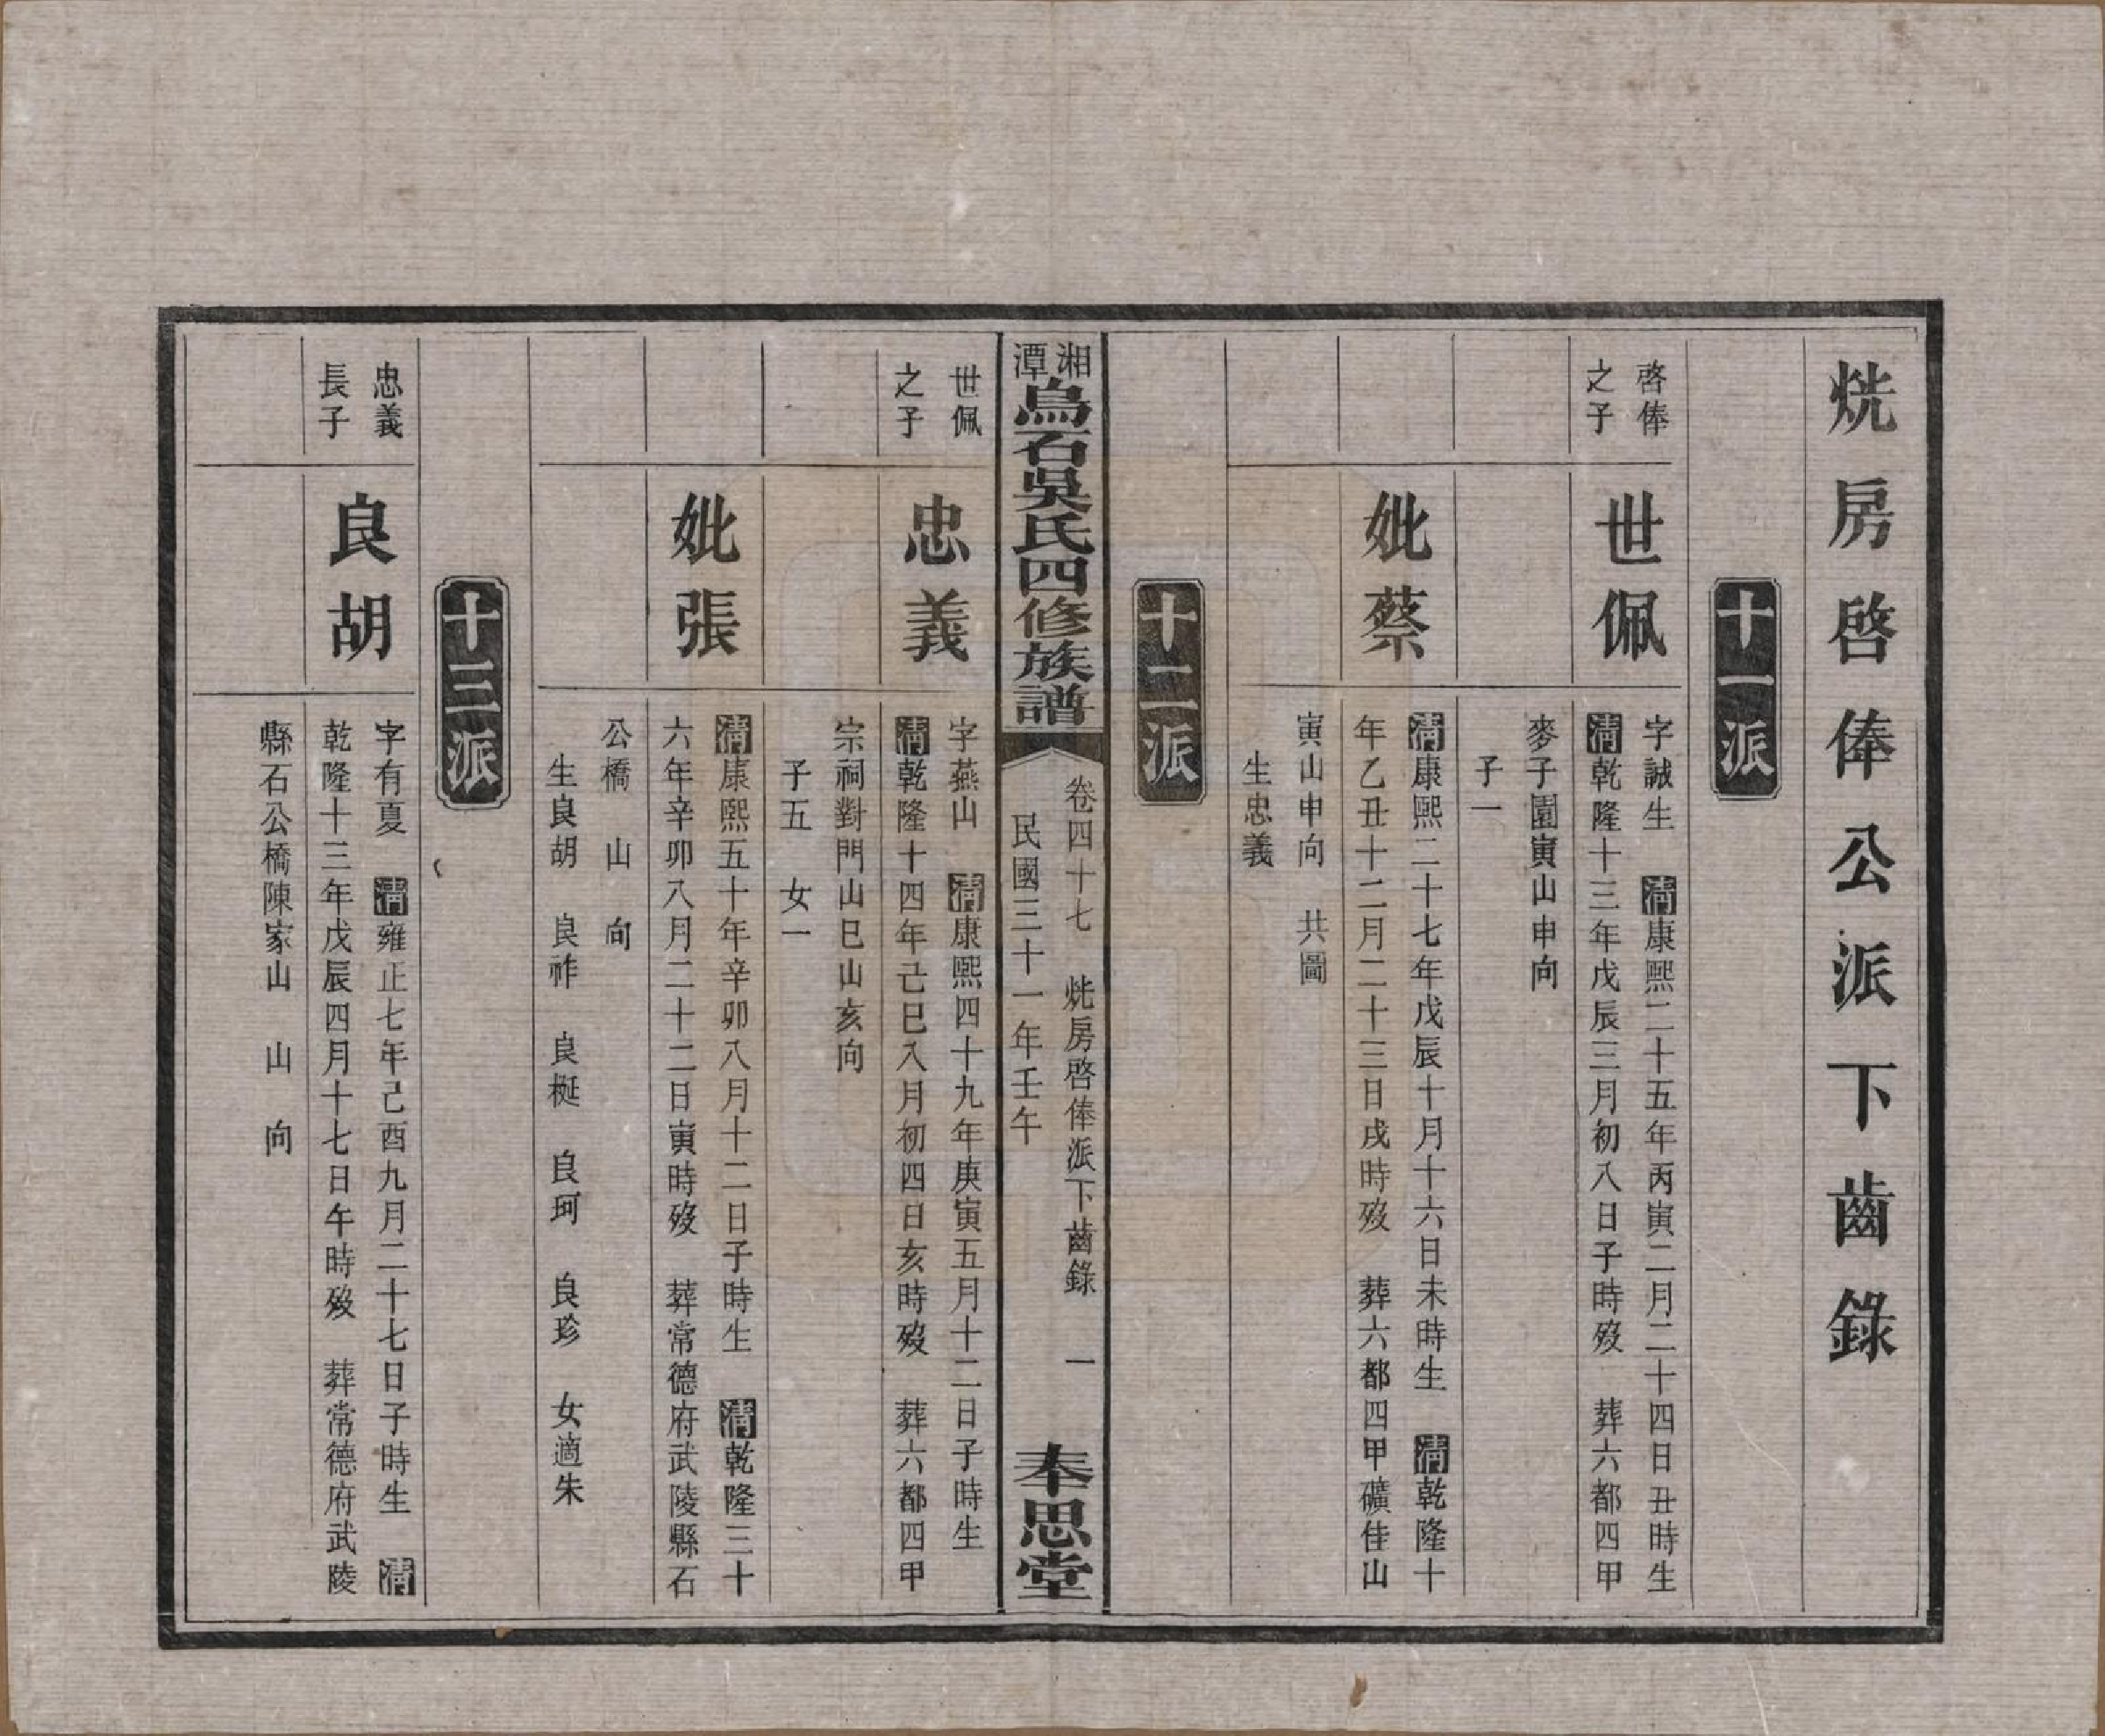 烍房啓俸公派下齒錄
十一派
啓俸
之子
世佩
字誠生　清康熙二十五年丙寅二月二十四日丑時生
清乾隆十三年戊辰三月初八日子時歿　葬六都四甲
麥子園寅山申向
子一
妣蔡
清康熙二十七年戊辰十月十六日未時生　清乾隆十
年乙丑十二月二十三日戌時歿　葬六都四甲礦佳山
寅山申向　共圖
生忠義
十二派
湘潭烏石吳氏四修族譜
卷四十七　烍房啓俸派下齒錄　一
民國三十一年壬午
奉思堂
世佩
之子
忠義
字燕山　清康熙四十九年庚寅五月十二日子時生
清乾隆十四年己巳八月初四日亥時歿　葬六都四甲
宗祠對門山巳山亥向
子五　女一
妣張
清康熙五十年辛卯八月十二日子時生　清乾隆三十
六年辛卯八月二十二日寅時歿　葬常德府武陵縣石
公橋　山　向
生良胡　良祚　良梃　良珂　良珍　女適朱
十三派
忠義
長子
良胡
字有夏　清雍正七年己酉九月二十七日子時生　清
乾隆十三年戊辰四月十七日午時歿　葬常德府武陵
縣石公橋陳家山　山　向